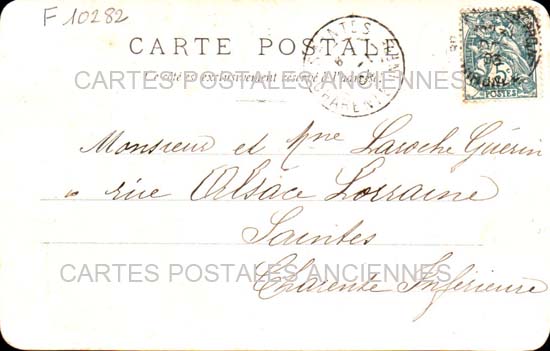 F 10282
CARTE POSTALE
Ce côté est exclusivement réservé à l'adresse
CARTES POSTALES ANCIENNES
SAINTES
5
POSTES
Monsieur et Mme Laroche Guérin
rue Alsace Lorraine
Saintes
CARTES POSTALES ANCIENNES
Charente Inférieure